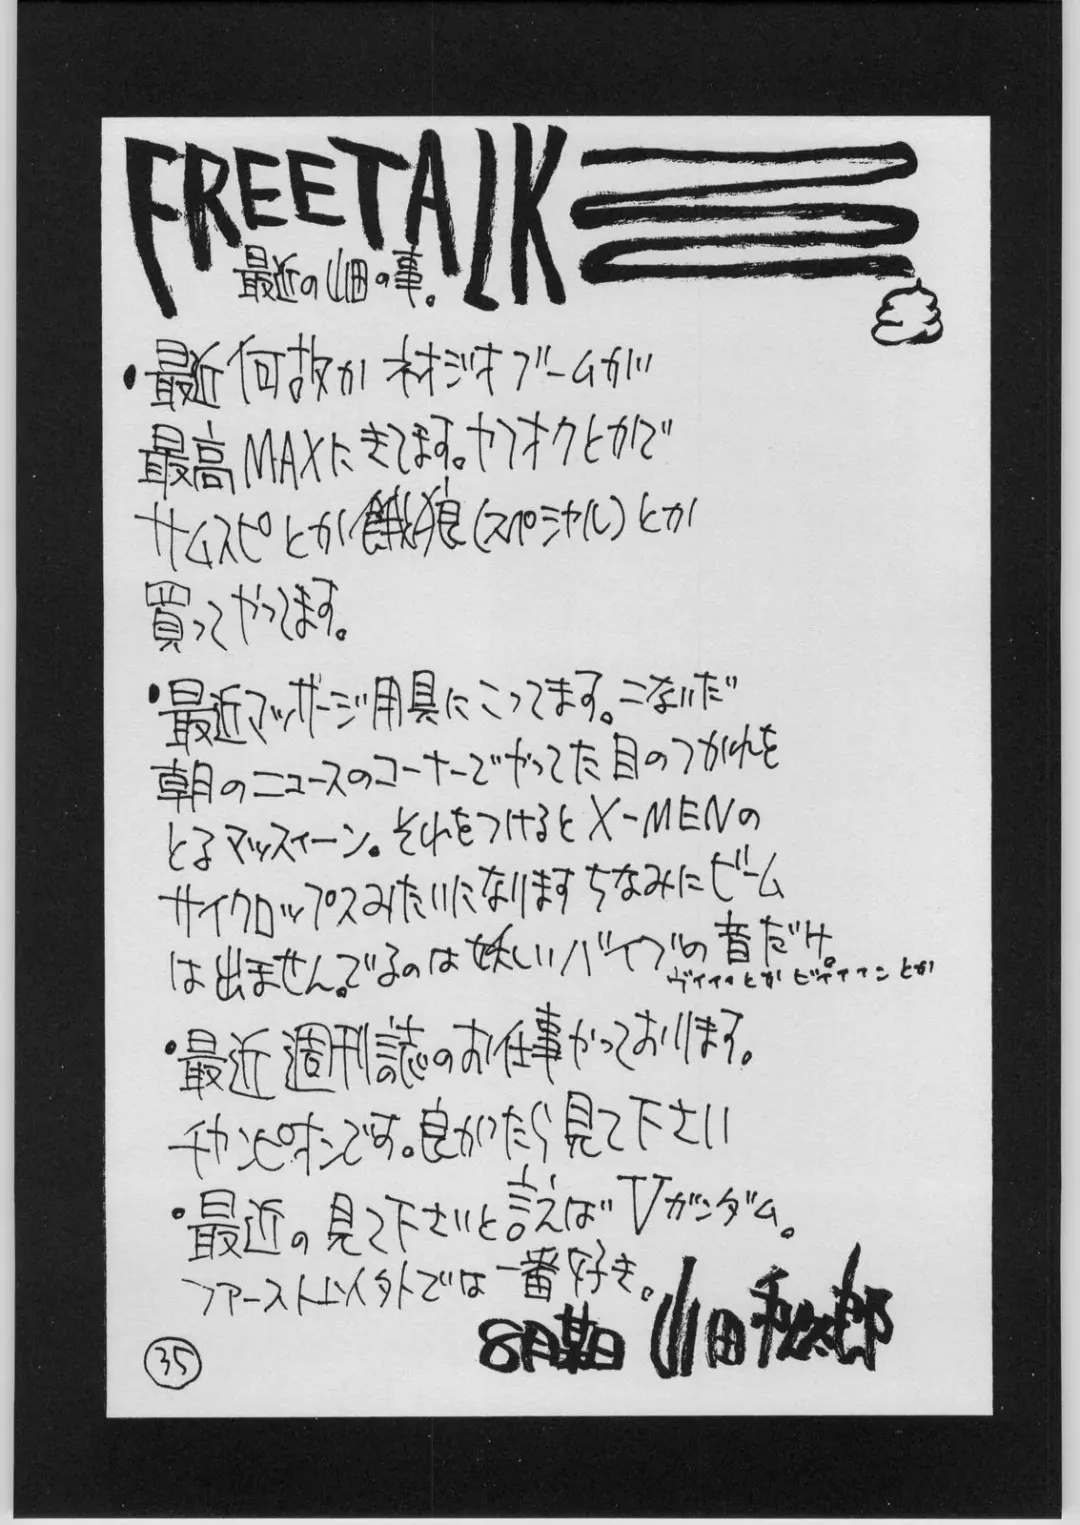 FREETALK
最近の山田の事。
・最近何故かネオジオブームが
最高MAXにきてます。ヤフオクとかで
サムスピとか餓狼(スペシャル)とか
買ってやってます。
・最近マッサージ用具にこってます。こないだ
朝のニュースのコーナーでやってた目のつかれを
とるマッスィーン。それをつけるとX-MENの
サイクロップスみたいになりますちなみにビーム
は出ません。でるのは妖しいバイブの音だけ。
ヴィィィとかビィィィンとか
・最近週刊誌のお仕事やっております。
チャンピオンです。良かったら見て下さい
・最近の見て下さいと言えばVガンダム。
ファースト以外では一番好き。
8月某日 山田秀次郎
35